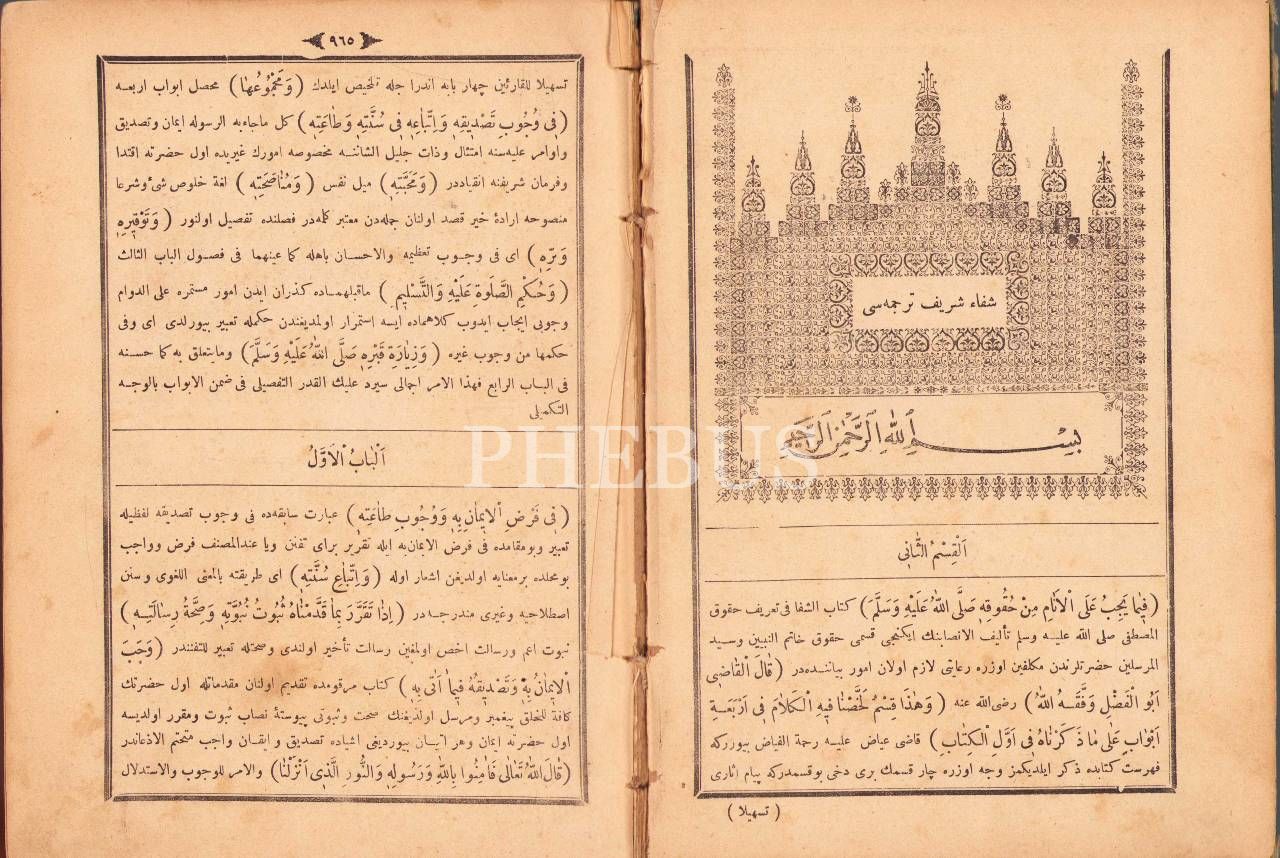 شفاء شریف ترجمه‌سی
بسم الله الرحمن الرحیم
اَلْقِسْمُ الثَّانِی
(فِیمَا یَجِبُ عَلَی الْاَنَامِ مِنْ حُقُوقِهِ صَلَّی اللّٰهُ عَلَیْهِ وَسَلَّمَ) کتاب الشفا فی تعریف حقوق
المصطفی صلی الله علیه وسلم تألیف الانصابنك ایکنجی قسمی حقوق خاتم النبیین وسید
المرسلین حضرتلرندن مکلفین اوزره رعایتی لازم اولان امور بیاننده‌در (قَالَ الْقَاضِی
اَبُو الْفَضْلِ وَفَّقَهُ اللّٰهُ) رضی الله عنه (وَهٰذَا قِسْمٌ لَخَّصْنَا فِیهِ الْکَلَامَ فِی اَرْبَعَةِ
اَبْوَابٍ عَلَی مَا ذَکَرْنَاهُ فِی اَوَّلِ الْکِتَابِ) قاضی عیاض علیه رحمة الفیاض بیوررکه
فهرست کتابده ذکر ایلدیکمز وجه اوزره چار قسمك بری دخی بوقسمدرکه پیام آثاری
(تسهیلا)
٩٦٥
تسهیلا للقارئین چهار بابه اندراجله تلخیص ایلدك (وَمَجْمُوعُهَا) محصل ابواب اربعه
(فِی وُجُوبِ تَصْدِیقِهِ وَاتِّبَاعِهِ فِی سُنَّتِهِ وَطَاعَتِهِ) کل ماجاءبه الرسوله ایمان وتصدیق
واوامر علیه‌سنه امتثال وذات جلیل الشاننه مخصوصه امورك غیریده اول حضرته اقتدا
وفرمان شریفنه انقیاددر (وَمَحَبَّتِهِ) میل نفس (وَمُنَاصَحَتِهِ) لغة خلوص شیء وشرعا
منصوحه ارادهٔ خیر قصد اولنان جمله‌دن معتبر کلمه‌در فصلنده تفصیل اولنور (وَتَوْقِیرِهِ
وَبِرِّهِ) ای فی وجوب تعظیمه والاحسان باهله کما عینهما فی فصول الباب الثالث
(وَحُکْمِ الصَّلٰوةِ عَلَیْهِ وَالتَّسْلِیمِ) ماقبلهماده گذران ایدن امور مستمره علی الدوام
وجوبی ایجاب ایدوب کلاهماده ایسه استمرار اولمدیغندن حکمله تعبیر بیورلدی ای وفی
حکمها من وجوب غیره (وَزِیَارَةِ قَبْرِهِ صَلَّی اللّٰهُ عَلَیْهِ وَسَلَّمَ) ومایتعلق به کما حسنه
فی الباب الرابع فهذا الامر اجمالی سیرد علیك القدر التفصیلی فی ضمن الابواب بالوجه
التکمیلی
اَلْبَابُ الْاَوَّلُ
(فِی فَرْضِ الْاِیمَانِ بِهِ وَوُجُوبِ طَاعَتِهِ) عبارت سابقه‌ده فی وجوب تصدیقه لفظیله
تعبیر وبومقامده فی فرض الایمان‌به ایله تقریر برای تفنن ویا عندالمصنف فرض وواجب
بومحلده برمعنایه اولدیغن اشعار اوله (وَاتِّبَاعِ سُنَّتِهِ) ای طریقته بالمعنی اللغوی وسنن
اصطلاحیه وغیری مندرجدر (اِذَا تَقَرَّرَ بِمَا قَدَّمْنَاهُ ثُبُوتُ نُبُوَّتِهِ وَصِحَّةُ رِسَالَتِهِ)
نبوت اعم ورسالت اخص اولمغین رسالت تأخیر اولندی وصحتله تعبیر للتفنندر (وَجَبَ
الْاِیمَانُ بِهِ وَتَصْدِیقُهُ فِیمَا اَتَی بِهِ) کتاب مرقومده تقدیم اولنان مقدماتله اول حضرتك
کافة للخلق پیغمبر ومرسل اولدیغنك صحت وثبوتی پیوستهٔ نصاب ثبوت ومقرر اولدیسه
اول حضرته ایمان وهر اتیان بیوردیغی اشیاده تصدیق وایقان واجب متحتم الاذعاندر
(قَالَ اللّٰهُ تَعَالَی فَاٰمِنُوا بِاللّٰهِ وَرَسُولِهِ وَالنُّورِ الَّذِی اَنْزَلْنَا) والامر للوجوب والاستدلال
PHEBUS